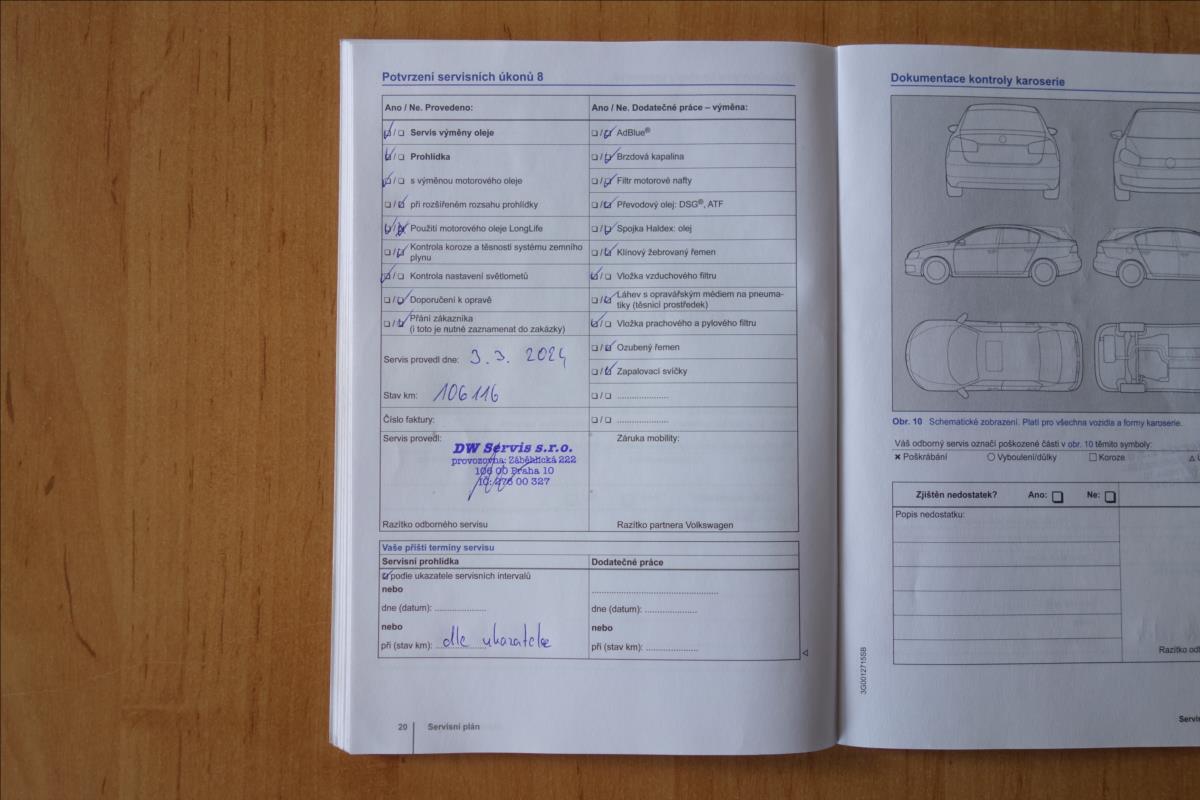 Potvrzení servisních úkonů 8
Ano / Ne. Provedeno:
Servis výměny oleje
Prohlídka
s výměnou motorového oleje
při rozšířeném rozsahu prohlídky
Použití motorového oleje LongLife
Kontrola koroze a těsnosti systému zemního
plynu
Kontrola nastavení světlometů
Doporučení k opravě
Přání zákazníka
(i toto je nutné zaznamenat do zakázky)
Servis provedl dne: 3.3. 2024
Stav km: 106116
Číslo faktury:
Servis provedl:
DW Servis s.r.o.
provozovna: Záběhlická 222
106 00 Praha 10
Razítko odborného servisu
Ano / Ne. Dodatečné práce – výměna:
AdBlue®
Brzdová kapalina
Filtr motorové nafty
Převodový olej: DSG®, ATF
Spojka Haldex: olej
Klínový žebrovaný řemen
Vložka vzduchového filtru
Láhev s opravářským médiem na pneuma-
tiky (těsnicí prostředek)
Vložka prachového a pylového filtru
Ozubený řemen
Zapalovací svíčky
Záruka mobility:
Razítko partnera Volkswagen
Vaše příští termíny servisu
Servisní prohlídka
podle ukazatele servisních intervalů
nebo
dne (datum):
nebo
při (stav km): dle ukazatele
Dodatečné práce
dne (datum):
nebo
při (stav km):
20 Servisní plán
Dokumentace kontroly karoserie
Obr. 10 Schematické zobrazení. Platí pro všechna vozidla a formy karoserie.
Váš odborný servis označí poškozené části v obr. 10 těmito symboly:
Poškrábání
Vyboulení/důlky
Koroze
Zjištěn nedostatek? Ano: Ne:
Popis nedostatku:
3G0012715SB